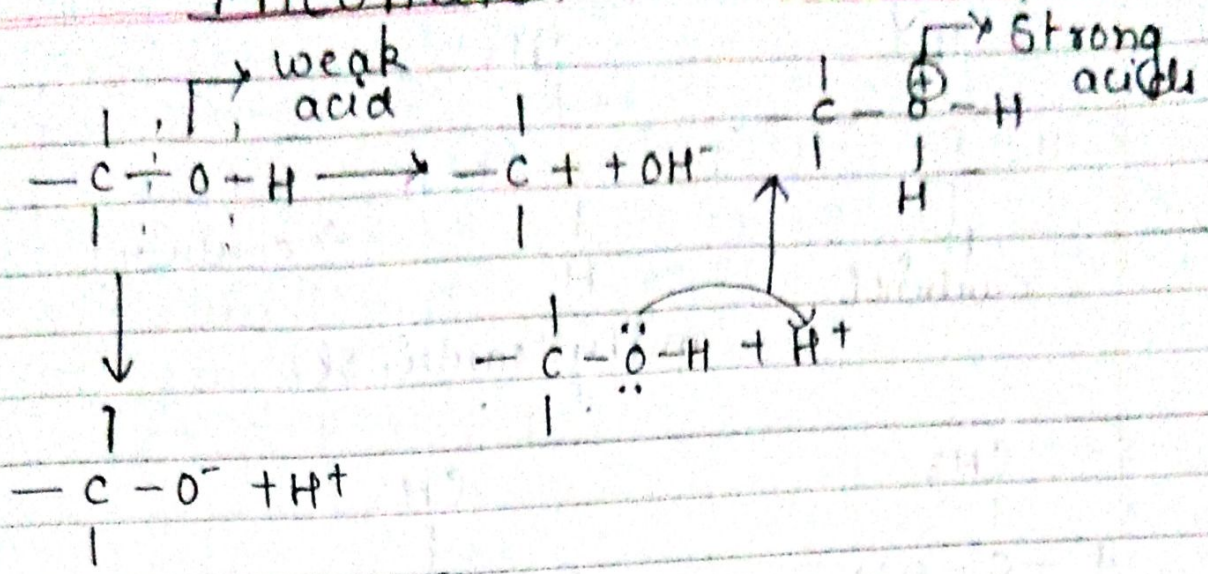 weak
acid
Strong
acids
— C — O — H → — C + + OH⁻
C — O — H
H
⊕
— C — Ö — H + H⁺
— C — O⁻ + H⁺